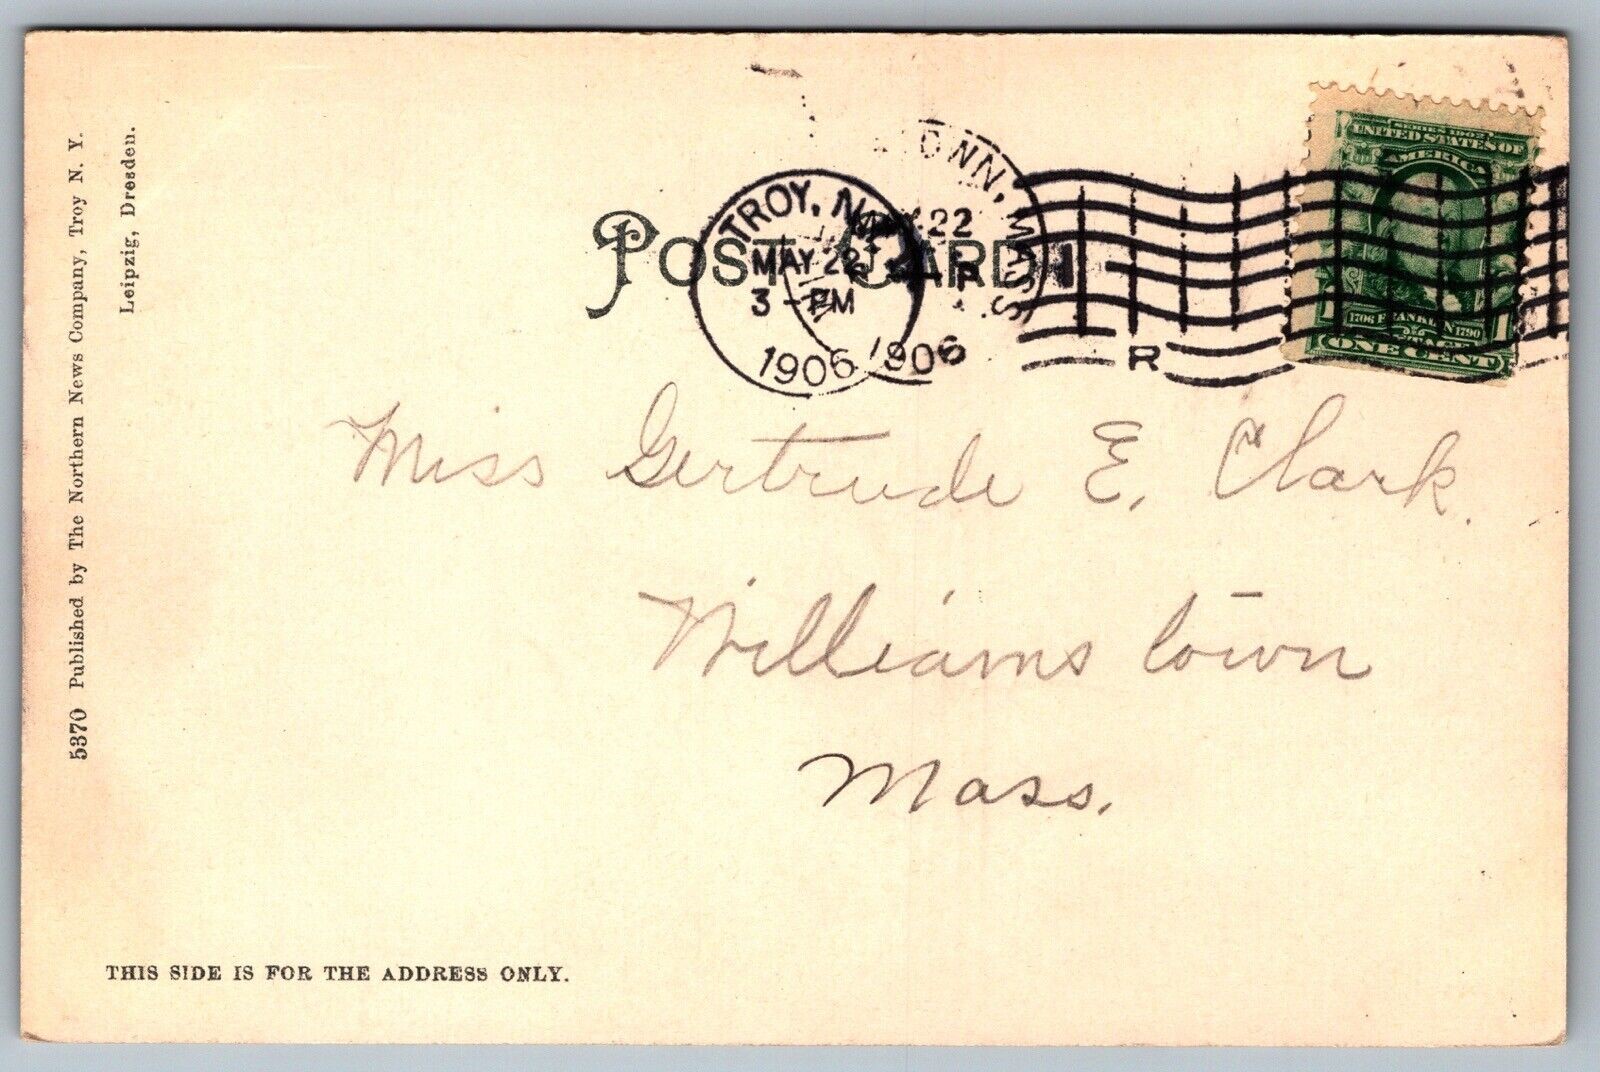 5370 Published by The Northern News Company, Troy N. Y.
Leipzig, Dresden.
POST CARD
TROY, N.
MAY 22
3 - PM
1906
OWN, MASS
22
1906
R
SERIES 1902
UNITED STATES OF
AMERICA
1706 FRANKLIN 1790
1 1
ONE CENT
Miss Gertrude E. Clark.
Williamstown
Mass.
THIS SIDE IS FOR THE ADDRESS ONLY.